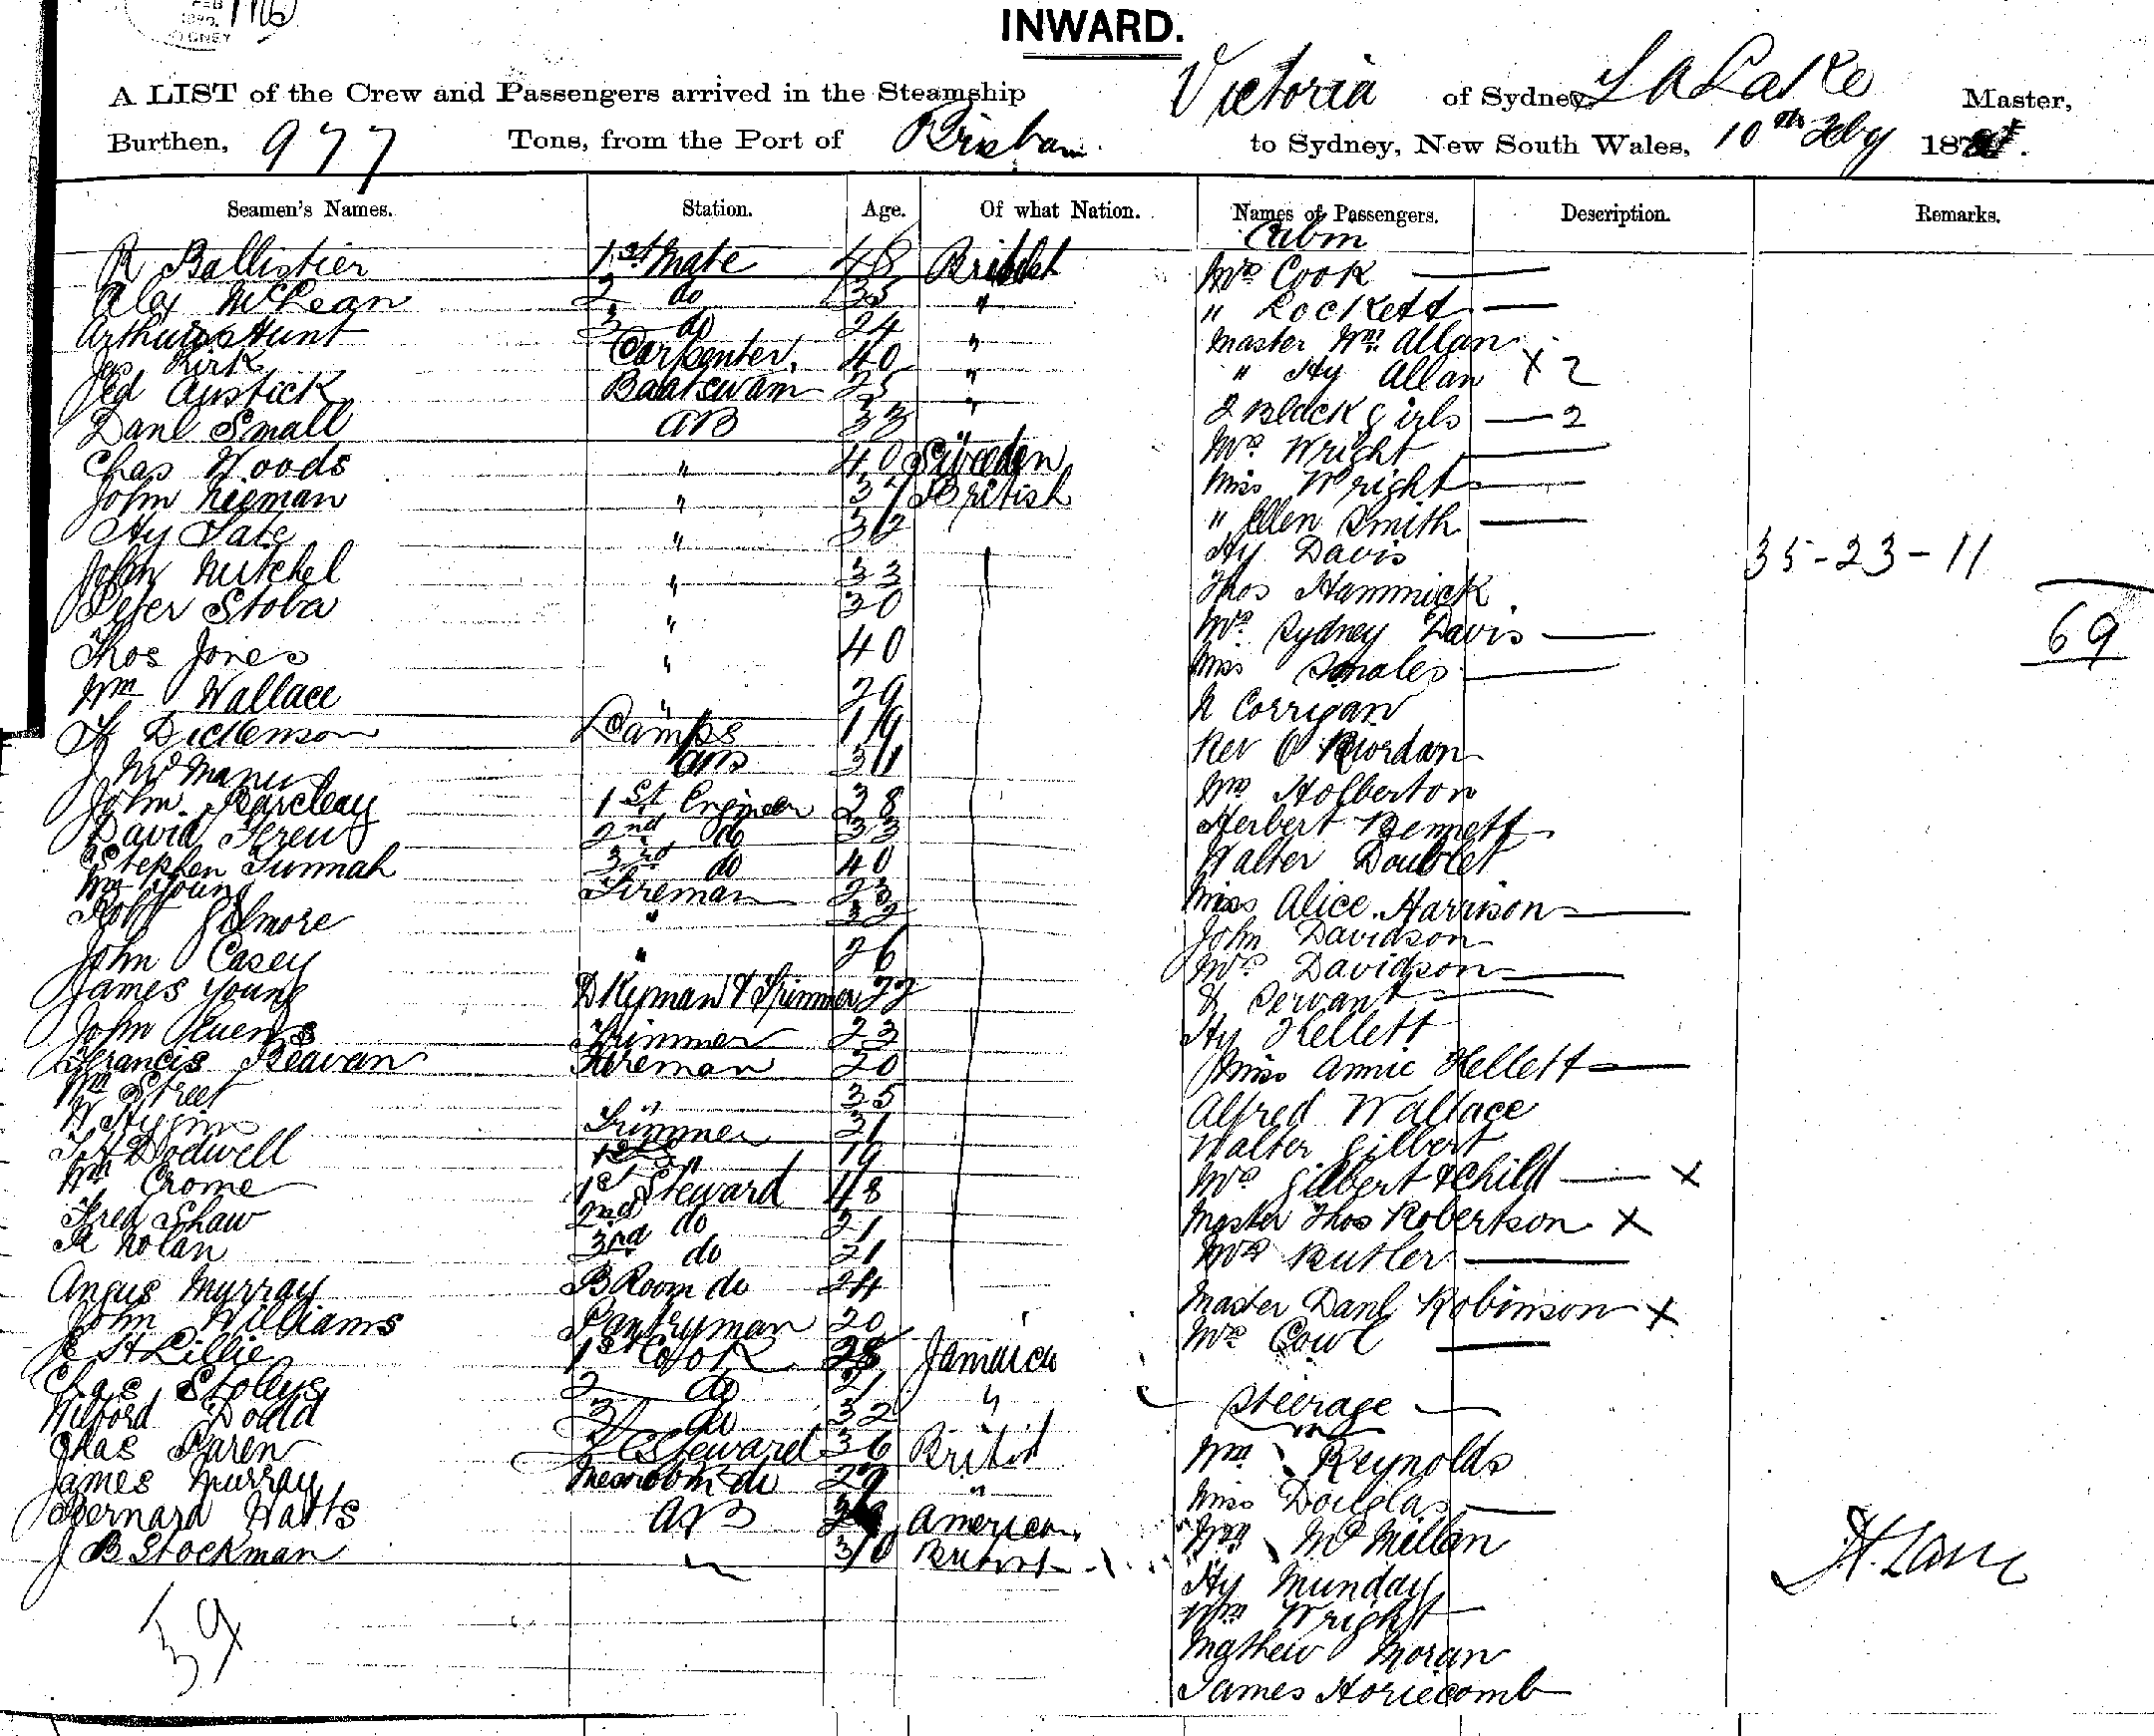 INWARD.
A LIST of the Crew and Passengers arrived in the Steamship Victoria of Sydney, Master,
Burthen, 977 Tons, from the Port of to Sydney, New South Wales, 10th Feby 18
Seamen's Names. Station. Age. Of what Nation. Names of Passengers. Description. Remarks.
Cabin
R Ballistier 1st Mate 48 British
Alex McLean 2 do 35 "
Arthur Hunt 3 do 24 "
Jas Kirk Carpenter 40 "
Ed Austick Boatswain 25 "
Danl Small AB 33 "
Chas Woods " 40 Sweden
John " 37 British
Hy Tate " 32
John Mitchel " 33
Peter Stoba " 30
Thos Jones " 40
Wm Wallace " 29
Dickenson Lamps 19
J McManus AB 31
John Barcleay 1st Engineer 28
David 2nd do 33
Stephen Tunnah 3rd do 40
Wm Young Fireman 23
Robt Gilmore " 32
John Casey " 26
James Young Dkeyman & Trimmer 22
John Trimmer 23
Francis Beavan Fireman 20
Wm Street " 35
W Trimmer 21
Dodwell " 19
Wm Crome 1st Steward 48
Fred Shaw 2nd do 21
R Nolan 3rd do 21
Angus Murray B Room do 24
John Williams Pantryman 20 "
E H Lillie 1st Cook 28 Jamaica
Chas 2 do 21 "
Wilford Dodd 3 do 32
Chas Paren Steward 36 British
James Murray Messroom do 29 "
Bernard Watts AB American
J B Stockman " 30 British
39
Mrs Cook
" Lockett
Master Wm Allan
" Hy Allan X 2
2 Black Girls — 2
Mrs Wright
Miss Wright
" Ellen Smith
Hy Davis
Thos Hammick
Mrs Sydney Davis
Miss
Corrigan
Rev O Riordan
Holberton
Herbert Bennett
Walter Doublet
Miss Alice Harrison
John Davidson
Mrs Davidson
& Servant
Hy Kellett
Miss Annie Kellett
Alfred Wallace
Walter Gilbert
Mrs Gilbert & Child X
Master Thos Robertson X
Mrs Butler
Master Danl Robinson X
Mrs Cowl
Steerage
Wm Reynolds
Miss Douglas
Wm McMillan
Hy Munday
Wm Wright
Mathew Moran
James
35-23-11
69